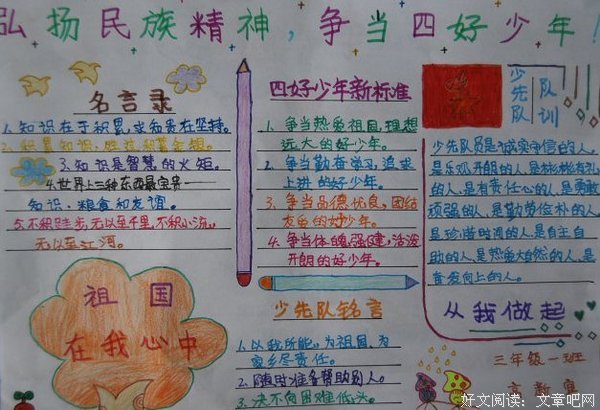 弘扬民族精神，争当四好少年！
名言录
1.知识在于积累，求知贵在坚持。
2.积累知识，胜过积蓄金银。
3.知识是智慧的火炬。
4.世界上三种东西最宝贵——
知识、粮食和友谊。
5.不积跬步，无以至千里，不积小流，
无以至江河。
祖国
在我心中
四好少年新标准
1.争当热爱祖国、理想
远大的好少年。
2.争当勤奋学习、追求
上进的好少年。
3.争当品德优良、团结
友爱的好少年。
4.争当体魄强健、活泼
开朗的好少年。
少先队铭言
1.以我所能，为祖国、为
家乡尽责任。
2.随时准备帮助别人。
3.决不向困难低头。
少先队
队训
少先队员是诚实守信的人。
是乐观开朗的人是彬彬有礼
的人,是有责任心的人,是勇敢
顽强的人,是勤劳俭朴的人
是珍惜时间的人,是自主自
助的人,是热爱大自然的人,是
奋发向上的人。
从我做起
三年级一班
好文阅读：文章吧网